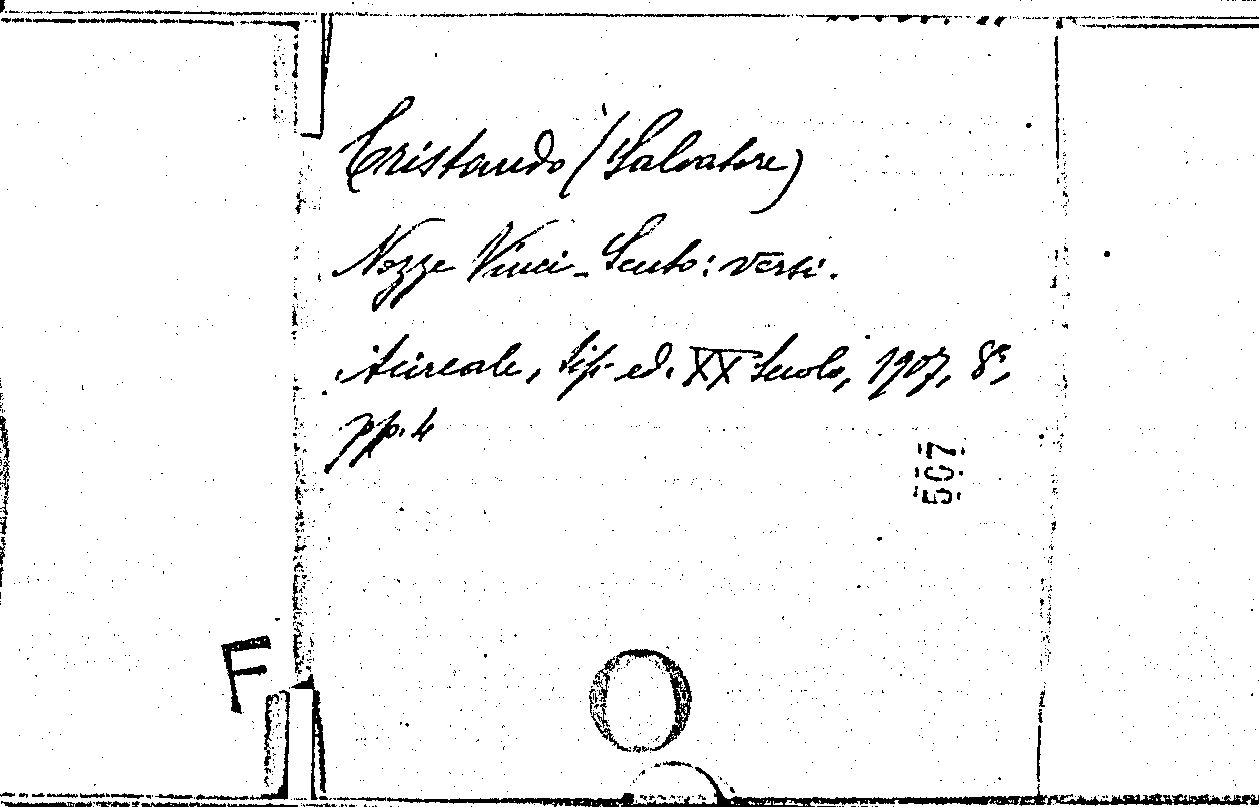 Cristaudo (Salvatore)
Nozze Vinci-Scuto: versi.
Acireale, tip. ed. XX Secolo, 1907, 8°,
pp. 4
507
F